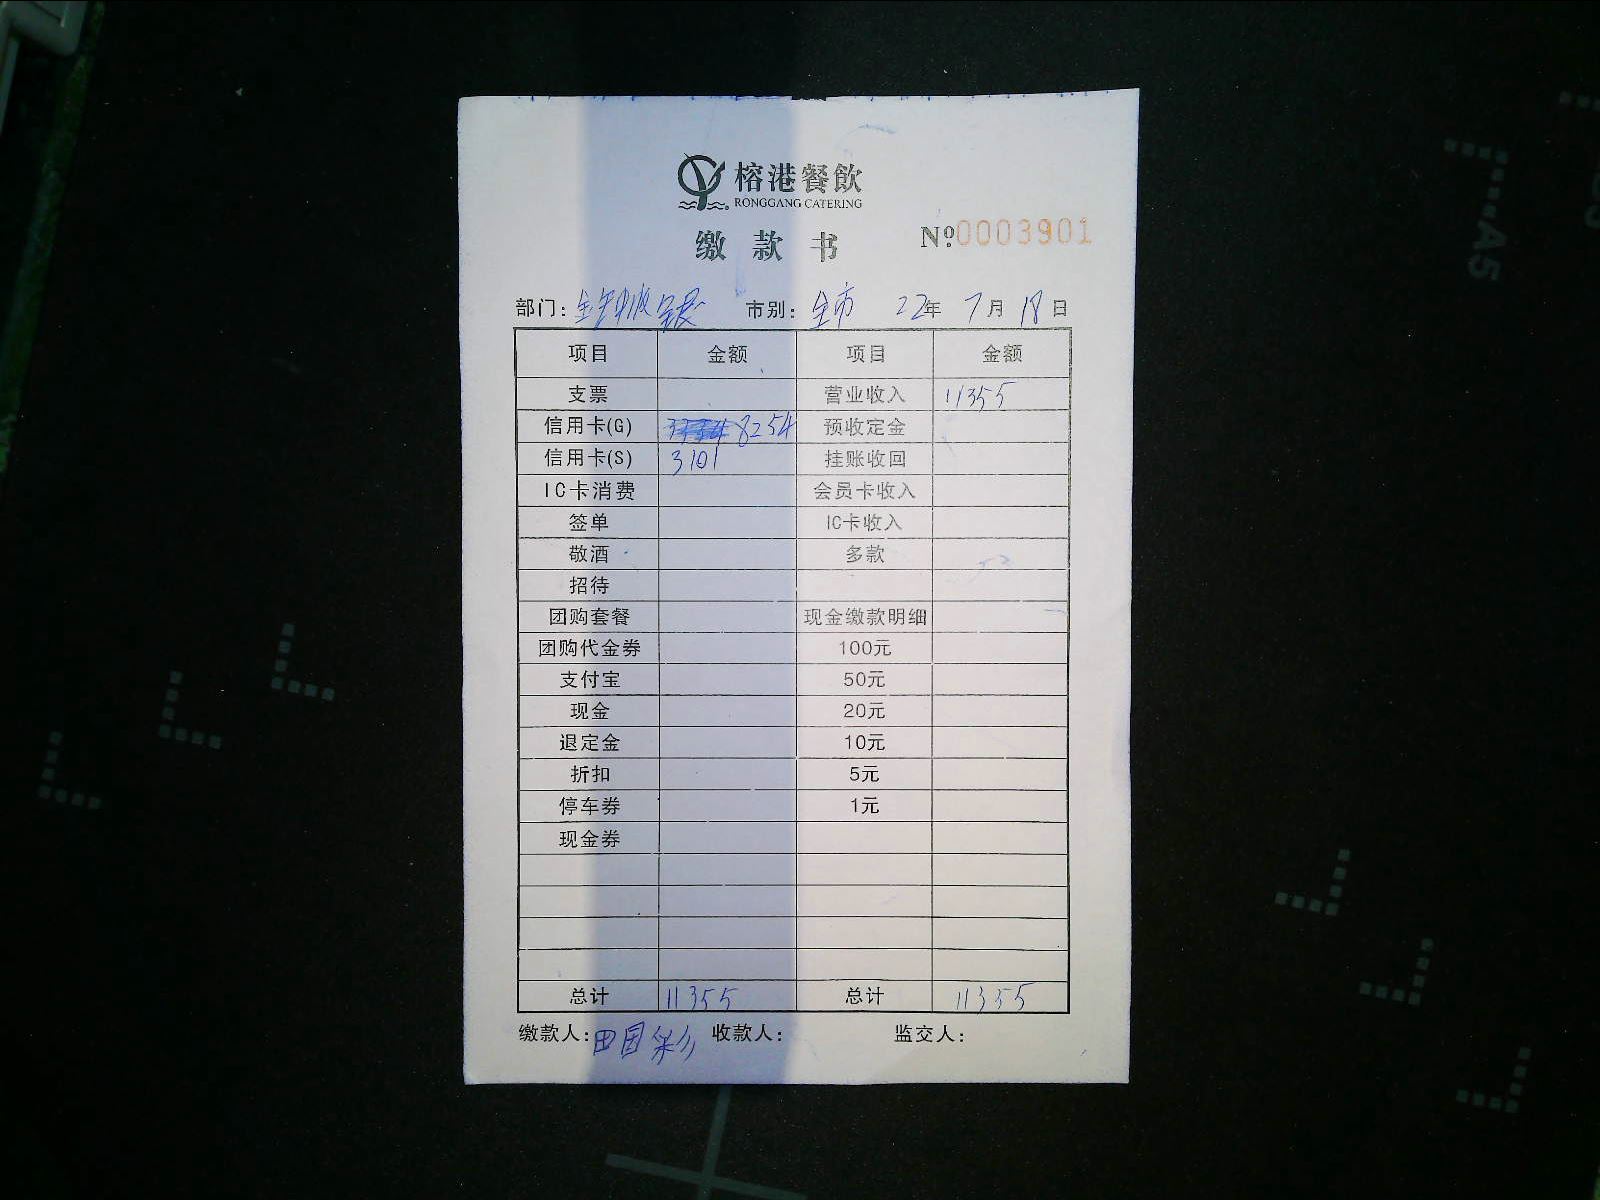 榕港餐飲
RONGGANG CATERING
缴款书 Nº:0003901
部门: 市别: 全市 22年 7月 18日
项目 金额 项目 金额
支票 营业收入 11355
信用卡(G) 8254 预收定金
信用卡(S) 3101 挂账收回
IC卡消费 会员卡收入
签单 IC卡收入
敬酒 多款
招待
团购套餐 现金缴款明细
团购代金券 100元
支付宝 50元
现金 20元
退定金 10元
折扣 5元
停车券 1元
现金券
总计 11355 总计 11355
缴款人: 田国彩 收款人: 监交人:
A5